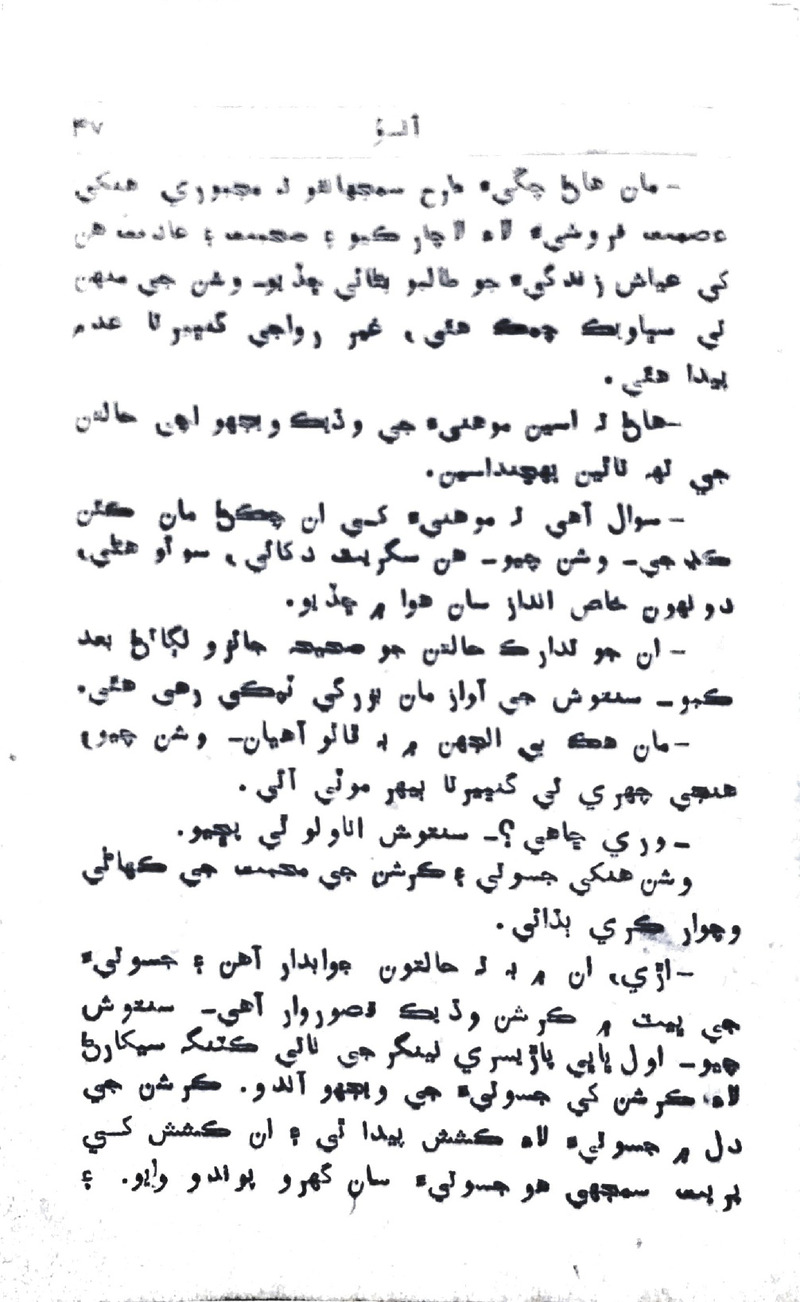 ۴۷ آلسۃ
-مان هاڻ چڱيءَ طرح سمجهانٿو ته مجبوري هنکي
عصمت فروشيءَ لاءِ لاچار ڪيو ۽ صحبت ۽ عادت هن
کي عياش زندگيءَ جو طالبو بڻائي ڇڏيو- وشن جي منهن
تي سياويڪ چمڪ هئي، غير رواجي گنڀيرتا عدم
پيدا هئي.
-هاڻ ته اسين موهنيءَ جي وڌيڪ ويجهو اچي حالتن
جي تهه تائين پهچنداسين.
-سوال آهي ته موهنيءَ کسي ان چڪڻ مان ڪٿن
ڪڍجي- وشن چيو- هن سگريٽ دکائي، سوٽو هڻي،
دونهون خاص انداز سان هوا ۾ ڇڏيو.
- ان جو تدارڪ حالتن جو صحيح جائزو لڳائڻ بعد
ڪبو- سنتوش جي آواز مان بزرگي ٽپڪي رهي هئي.
-مان هڪ ٻي الجهن ۾ به ڦاٿو آهيان- وشن چيو،
هنجي چهري تي گنڀيرتا ٻيهر موٽي آئي.
-وري ڇاهي؟- سنتوش اتاولو ٿي پڇيو.
وشن هنکي جسوتي ۽ ڪرشن جي محبت جي ڪهاڻي
وچوار ڪري ٻڌائي.
-اڙي، ان ۾ به ته حالتون جوابدار آهن ۽ جسوتيءَ
جي ڀيٽ ۾ ڪرشن وڌيڪ قصوروار آهي- سنتوش
چيو- اول ڀاڀي پاڙيسري ليڊگر جي ناتي ڪٽنگ سيکارڻ
لاءِ ڪرشن کي جسوتيءَ جي ويجهو آندو. ڪرشن جي
دل ۾ جسوتيءَ لاءِ ڪشش پيدا ٿي ۽ ان ڪشش کسي
پريت سمجهي هو جسوتيءَ سان گهرو پوندو ويو. ۽